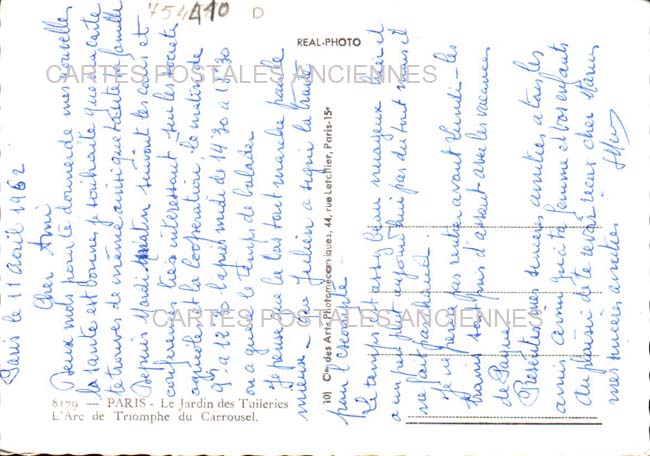 754410 D
REAL-PHOTO
CARTES POSTALES ANCIENNES
CARTES POSTALES ANCIENNES
8179 — PARIS - Le Jardin des Tuileries
L'Arc de Triomphe du Carrousel.
101 Cie des Arts Photomécaniques, 44, rue Letellier, Paris-15e
Paris le 11 avril 1962
Cher Ami
Deux mots pour te donner de mes nouvelles
la santé est bonne, je souhaite que ma carte
te trouve de même ainsi que toute famille
Depuis Mardi matin suivont les cours et
conférences très intéressant sur les sociétés
agricoles et la coopération, le matin de
9h à 12h30 l'après midi de 14h30 à 18h30
on a que le temps de balader
Je pense que là bas tout marche pour le
mieux - que Julien a signé la
pour l'
Le temps est assez beau nuageux hier il
a un peu plu aujourd'hui pas du tout mais il
ne fait pas chaud
Je ne pense pas rentrer avant Lundi - les
trains sont pris d'assaut avec les vacances
de Pâques
Présentez mes sincères amitiés à tous les
amis ainsi qu'à ta femme et vos enfants
au plaisir de te revoir recevez cher
mes sincères amitiés